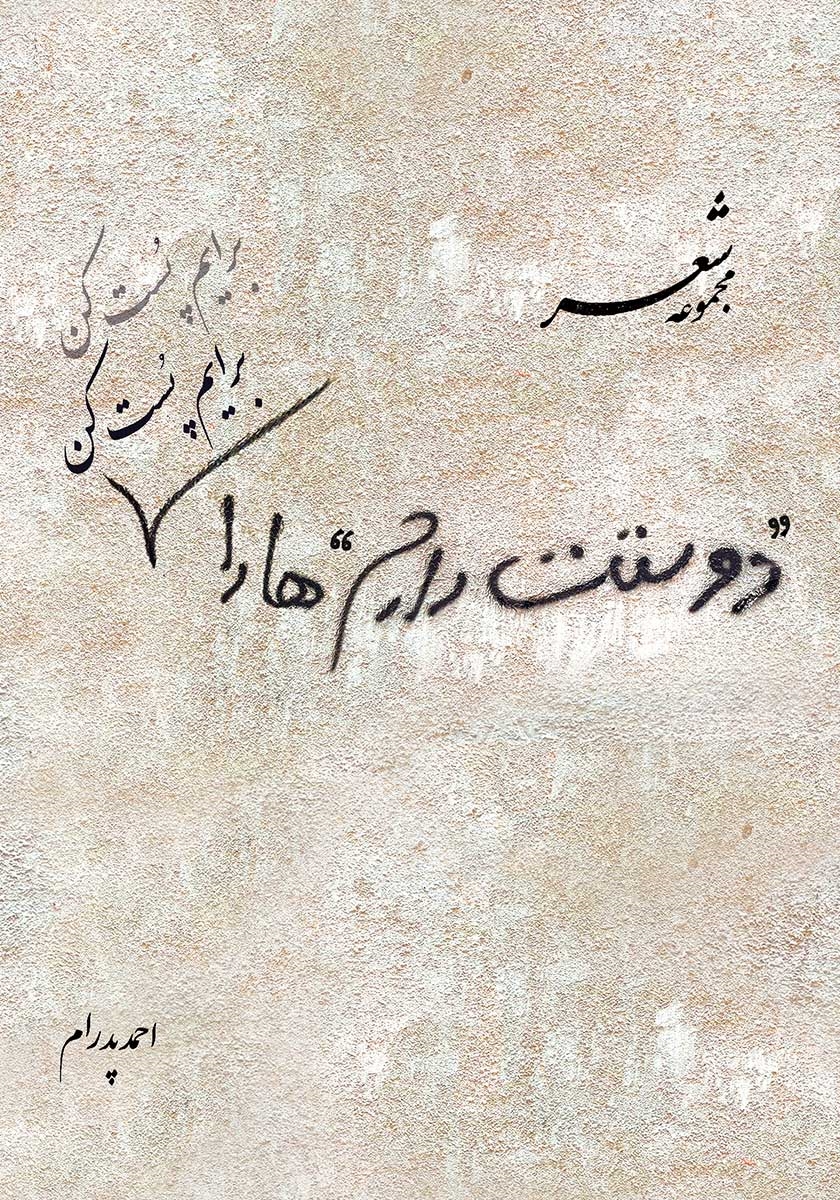 مجموعه شعر
برایم پُست کن
برایم پُست کن
”دوستت دارم“ ها را
احمد پدرام